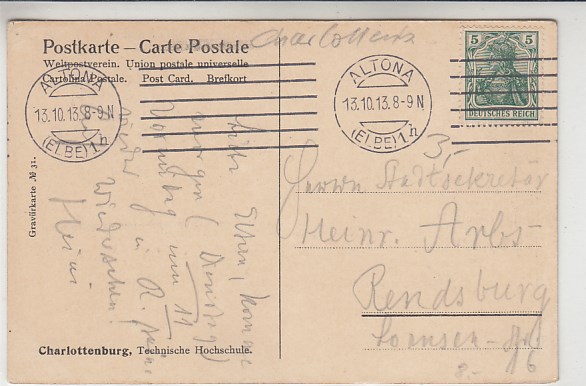 Charlottenb
Postkarte – Carte Postale
Weltpostverein. Union postale universelle
Cartolina Postale. Post Card. Brefkort
5 5
DEUTSCHES REICH
ALTONA
13.10.13.8-9 N
(ELBE) 1. h
ALTONA
13.10.13.8-9 N
(ELBE) 1. h
3,-
Herrn Stadtsekretär
Heinr. Arbs
Rendsburg
Lornsen-Str. 6
8.-
Liebe Eltern, komme
morgen (Dienstag)
Vormittag um 11
in R.
Wiedersehen!
Heini
Gravürkarte № 31.
Charlottenburg, Technische Hochschule.